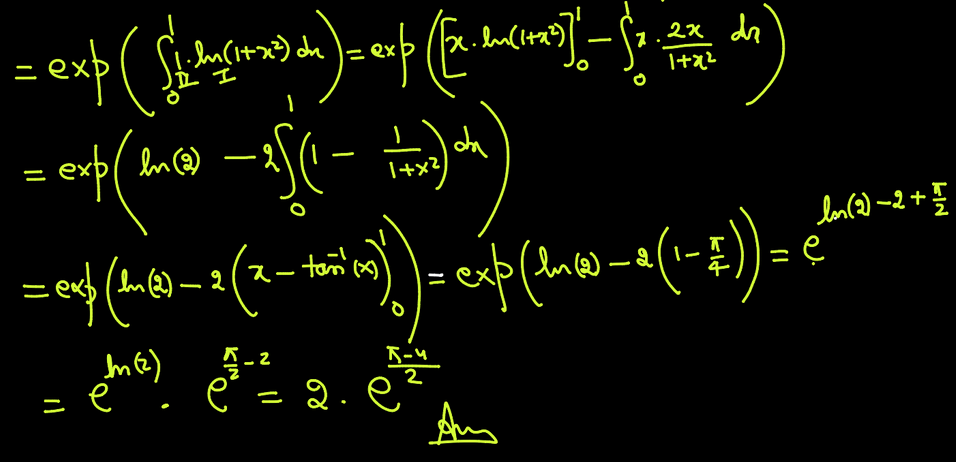 = exp ( ∫₀¹ 1 · ln(1+x²) dx ) = exp ( [x · ln(1+x²)]₀¹ − ∫₀¹ x · 2x/(1+x²) dx )
II I
= exp ( ln(2) − 2 ∫₀¹ (1 − 1/(1+x²)) dx )
= exp ( ln(2) − 2 (x − tan⁻¹(x))₀¹ ) = exp ( ln(2) − 2 (1 − π/4) ) = e^(ln(2) − 2 + π/2)
= e^(ln(2)) · e^(π/2 − 2) = 2 · e^((π−4)/2)
Ans